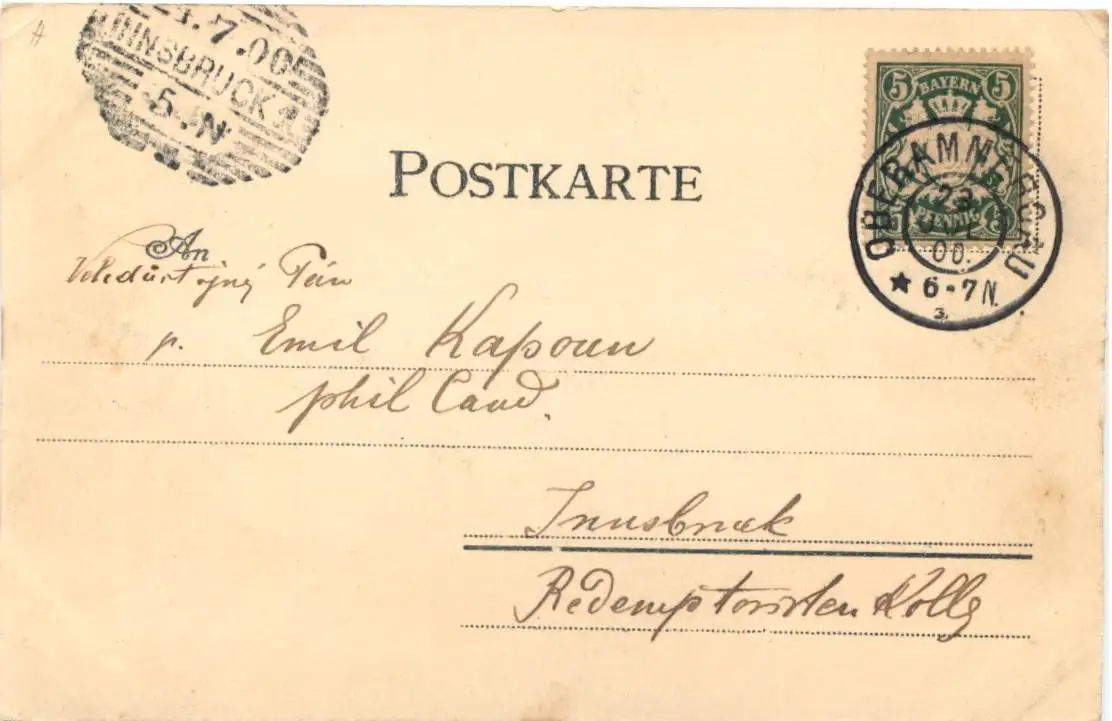 A
1.7.00
INNSBRUCK 1
5.N
5 BAYERN 5
5 PFENNIG 5
OBERAMMERGAU
00.
★ 6-7N.
3.
POSTKARTE
An
Veledůstojný Pán
p. Emil Kapoun
phil Cand.
Innsbruck
Redemptoristen Kollg